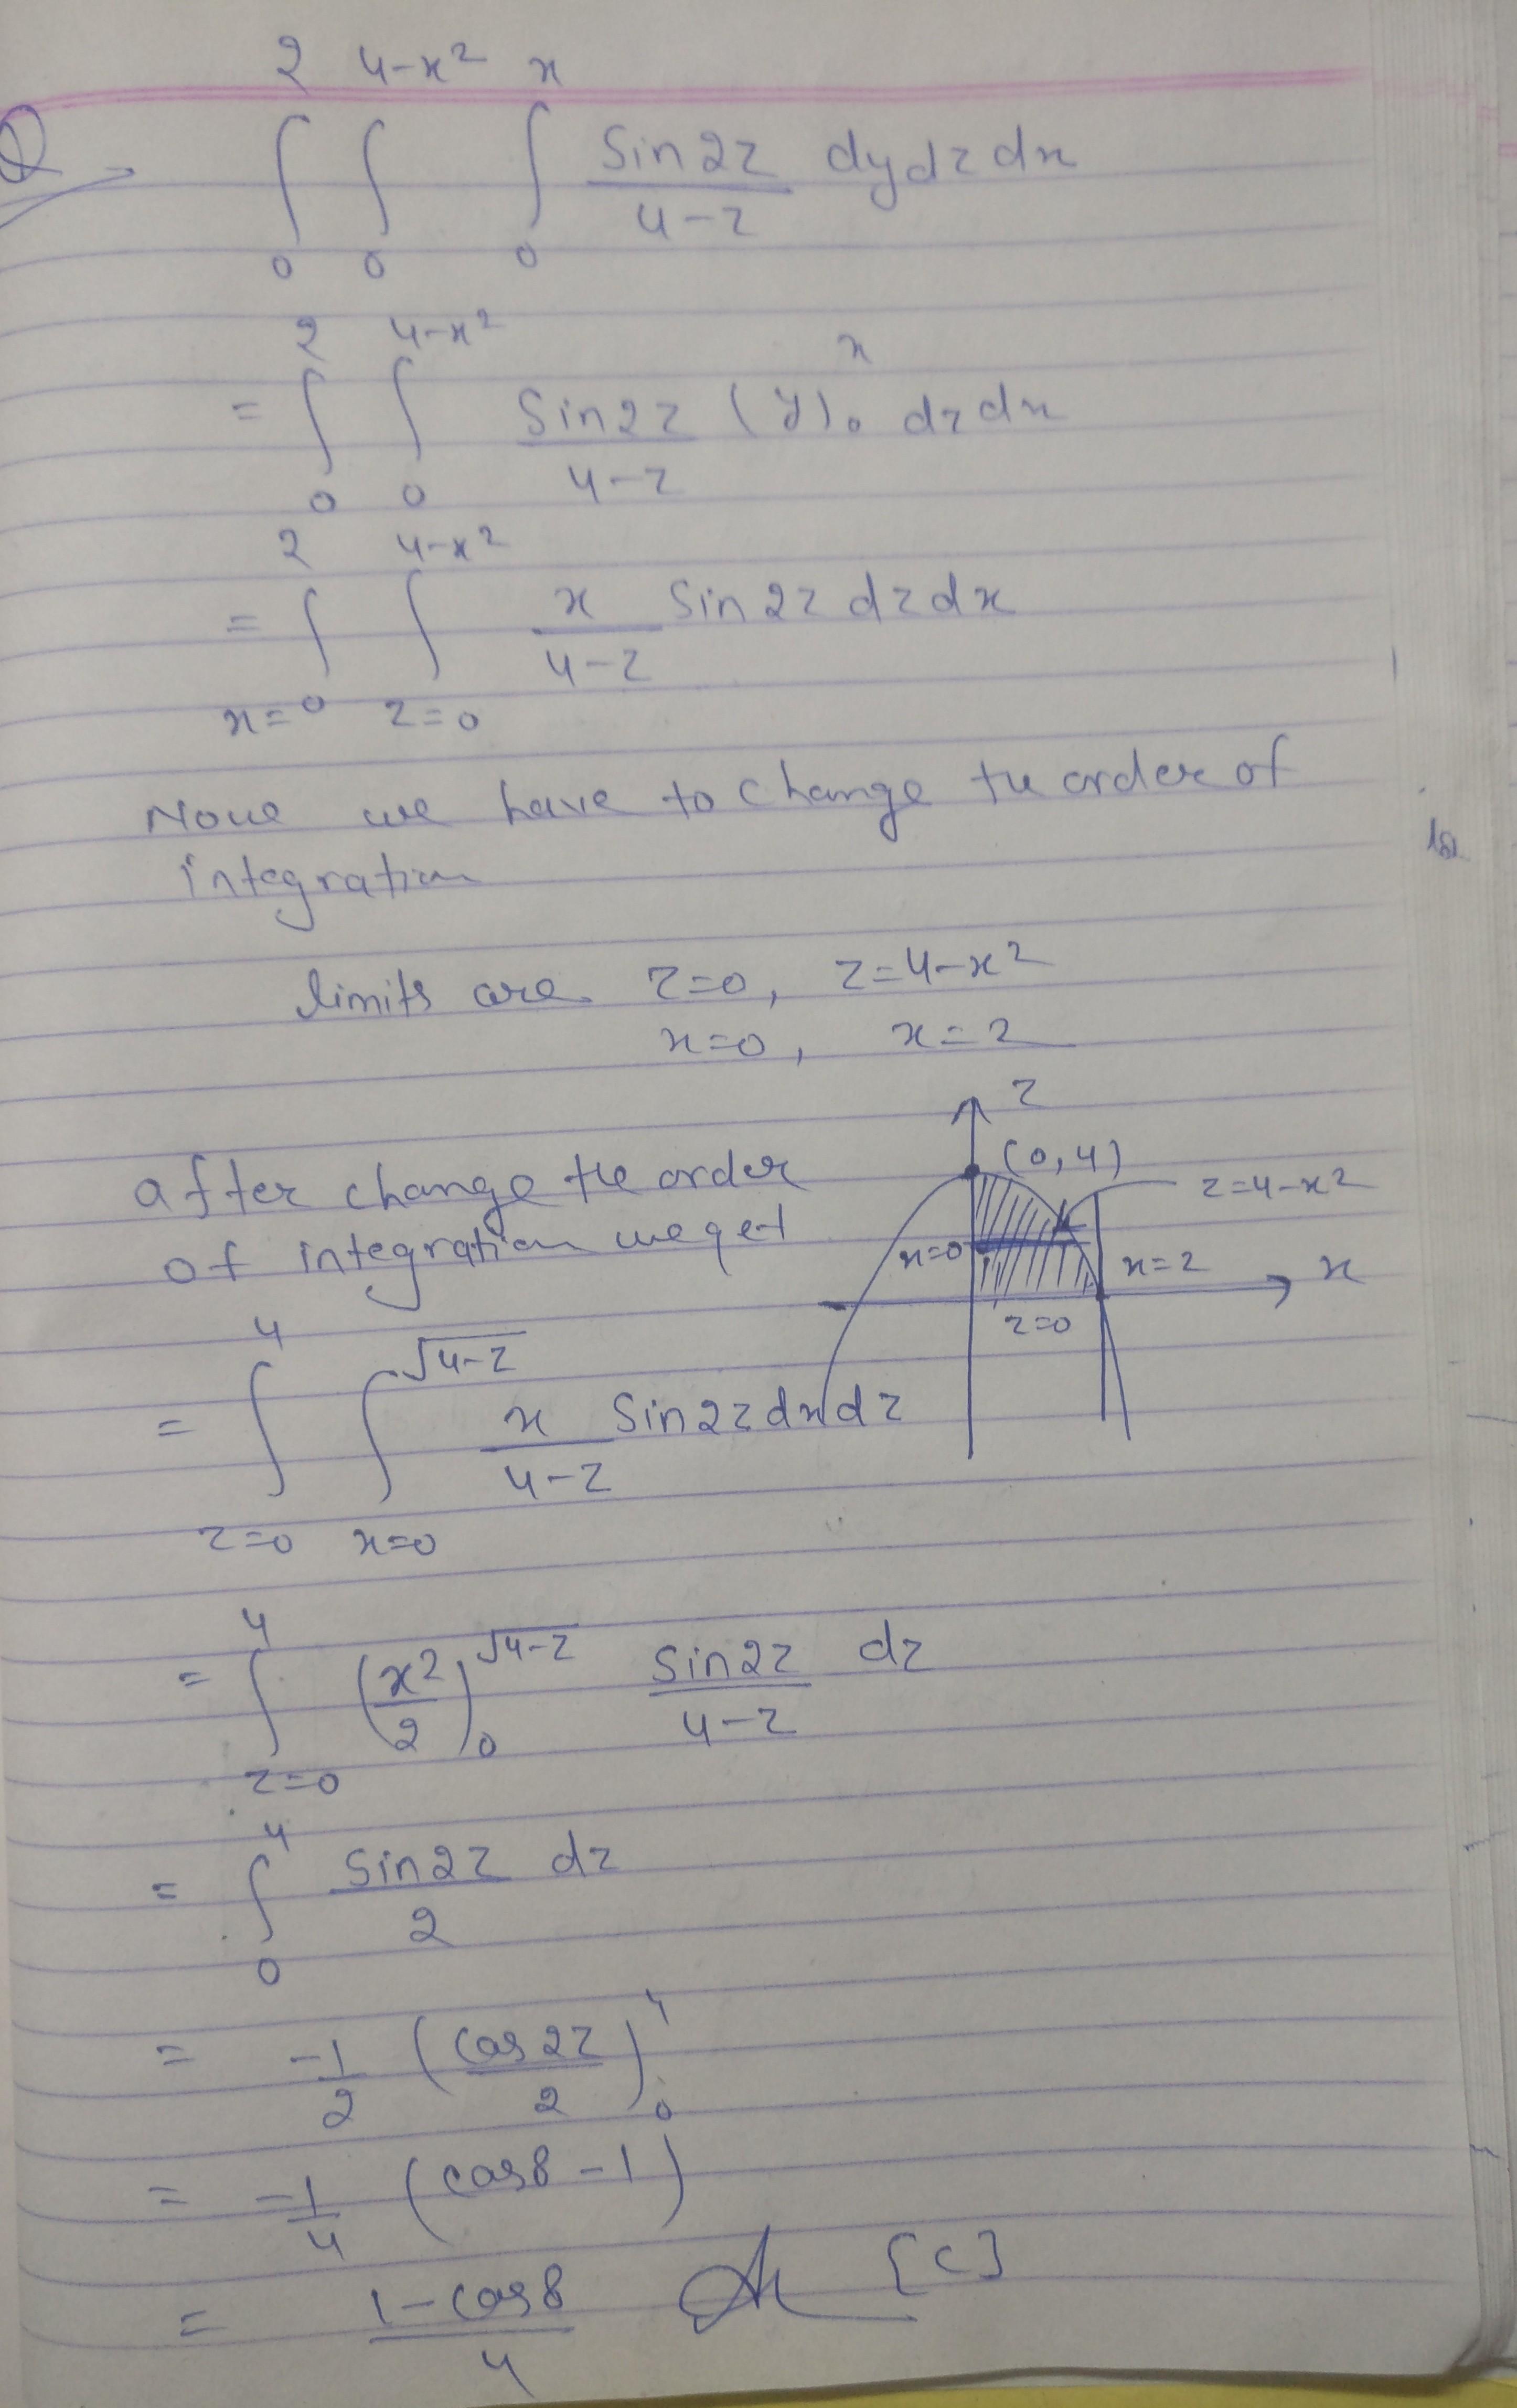 Q → ∫₀² ∫₀^{4-x²} ∫₀^{x} Sin2z/(4-z) dydzdx
= ∫₀² ∫₀^{4-x²} Sin2z/(4-z) (y)₀^{x} dzdx
= ∫_{x=0}^{2} ∫_{z=0}^{4-x²} x/(4-z) Sin2z dzdx
Now we have to change the order of
integration
limits are z=0, z=4-x²
x=0, x=2
z
(0,4)
z=4-x²
x=0
x=2
x
z=0
after change the order
of integration we get
= ∫_{z=0}^{4} ∫_{x=0}^{√(4-z)} x/(4-z) Sin2z dxdz
= ∫_{z=0}^{4} (x²/2)₀^{√(4-z)} Sin2z/(4-z) dz
= ∫₀⁴ Sin2z/2 dz
= -1/2 (cos2z/2)₀⁴
= -1/4 (cos8-1)
= (1-cos8)/4 [C]